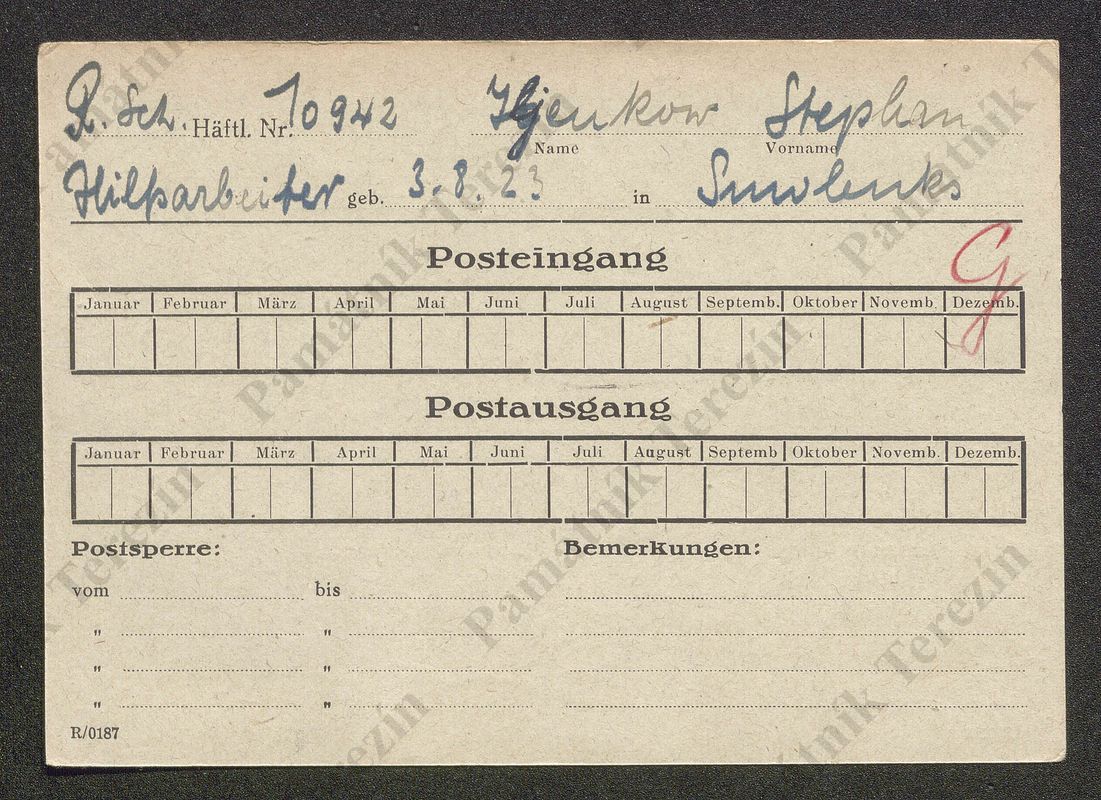 R. Sch. Häftl. Nr. 10942 Iljenkow Stephan
Name Vorname
Hilfsarbeiter geb. 3.8.23 in Smolenks
Posteingang
G
Januar Februar März April Mai Juni Juli August Septemb. Oktober Novemb. Dezemb.
Postausgang
Januar Februar März April Mai Juni Juli August Septemb Oktober Novemb. Dezemb.
Postsperre: Bemerkungen:
vom bis
" "
" "
" "
R/0187
Památník Terezín